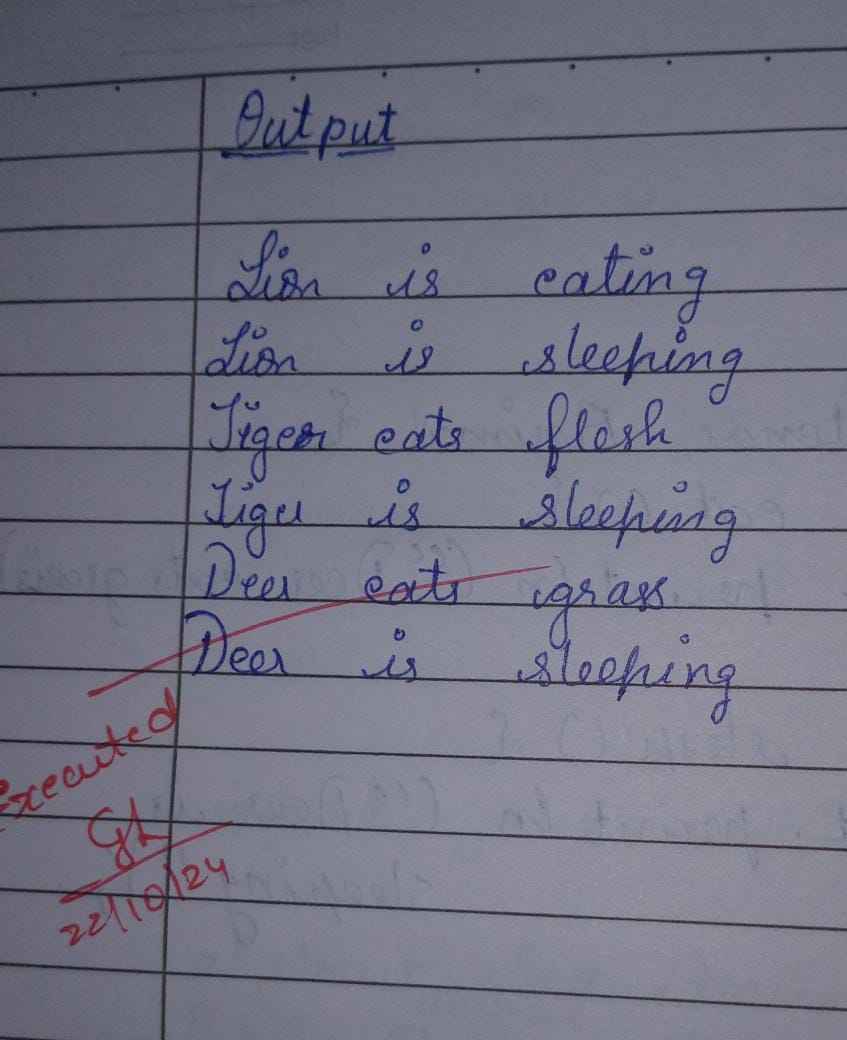 Output
Lion is eating
Lion is sleeping
Tiger eats flesh
Tiger is sleeping
Deer eats grass
Deer is sleeping
Executed
22/10/24